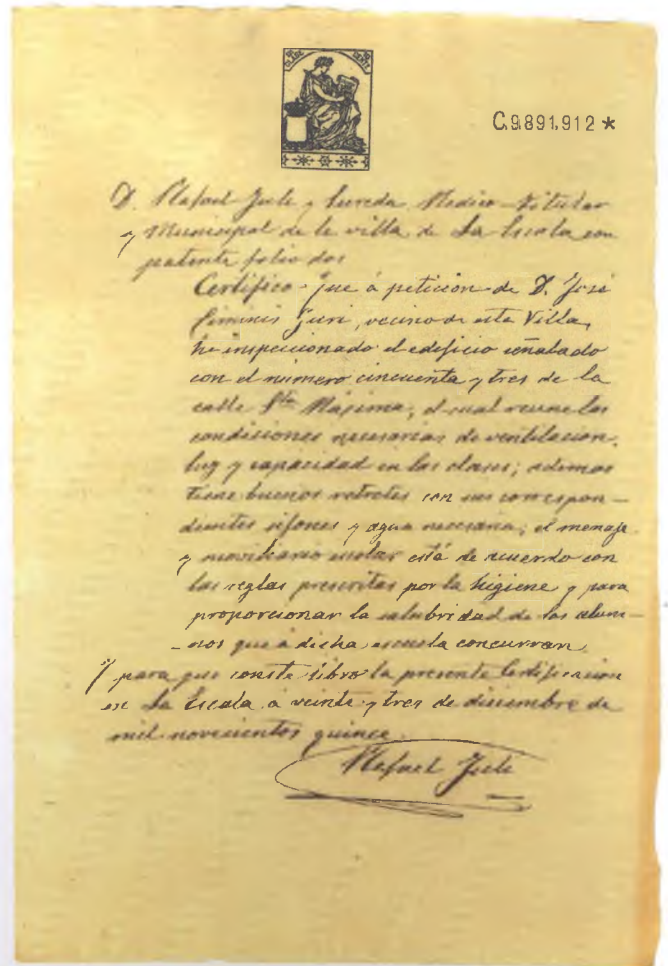 C.9.891.912 *
D. Rafael Juli y Sureda Medico-Titular
y Municipal de la villa de La Escala con
patente folio dos
Certifico: que á petición de D. José
Giri, vecino de esta Villa,
he inspeccionado el edificio señalado
con el número cincuenta y tres de la
calle Sta Máxima, el cual reune las
condiciones necesarias de ventilacion,
luz y capacidad en las clases; ademas
tiene buenos retretes con sus correspon-
dientes sifones y agua necesaria; el menaje
y moviliario escolar está de acuerdo con
las reglas prescritas por la higiene y para
proporcionar la salubridad de los alum-
-nos que á dicha escuela concurran.
Y para que conste libro la presente Certificacion
en La Escala á veinte y tres de diciembre de
mil novecientos quince.
Rafael Juli